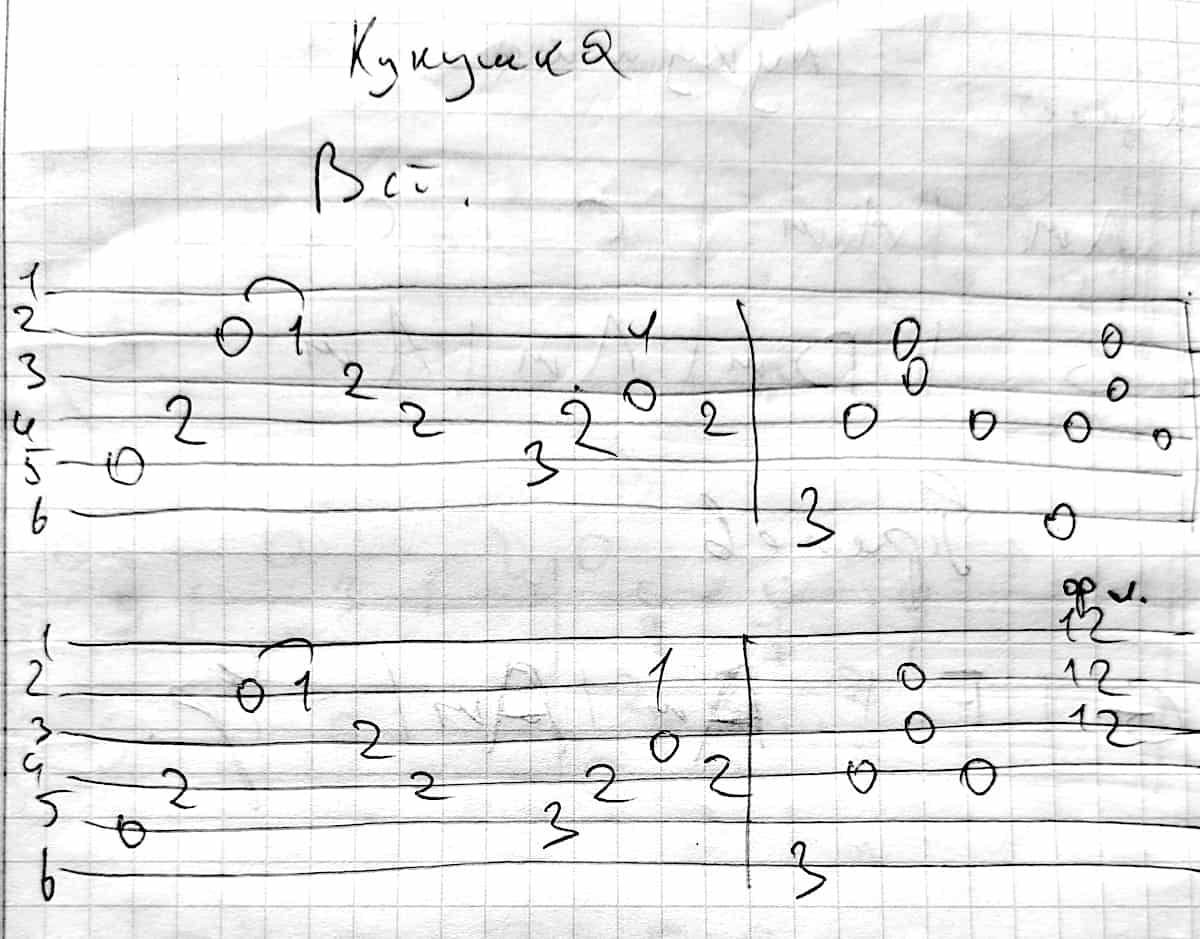 Кукушка
Вст.
1
2 0 1 1 0 0
3 2 0 0 0
4 2 2 2 2 0 0 0 0
5 0 3
6 3 0
фл.
1 12
2 0 1 1 0 12
3 2 0 0 12
4 2 2 2 2 0 0
5 0 3
6 3